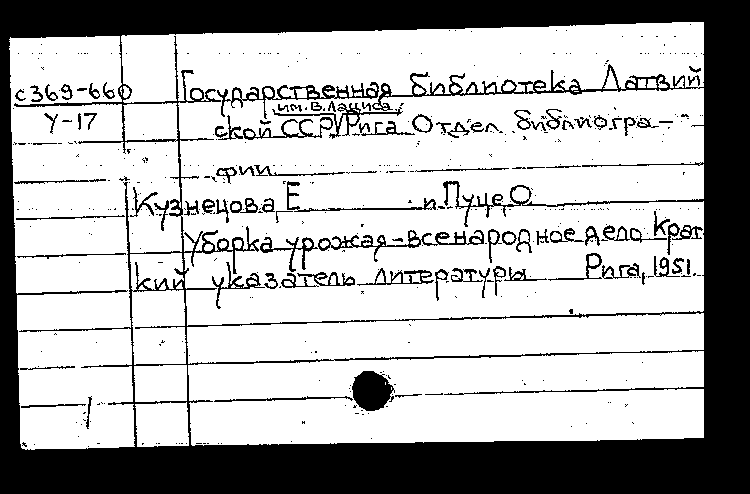 с369-660
У-17
Государственная библиотека Латвий
им. В. Лациса
ской ССР, Рига Отдел библиогра-
фии.
Кузнецова, Е и Пуце, О
Уборка урожая - всенародное дело Крат
кий указатель литературы Рига, 1951.